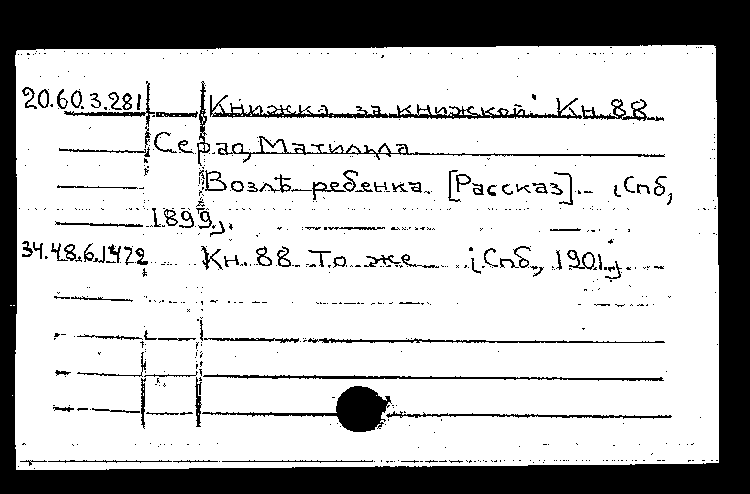 20.60.3.281 Книжка за книжкой. Кн. 88
Серао, Матильда
Возлѣ ребенка. [Рассказ].- [Спб,
1899].
34.48.6.1472 Кн. 88 То же [Спб, 1901]